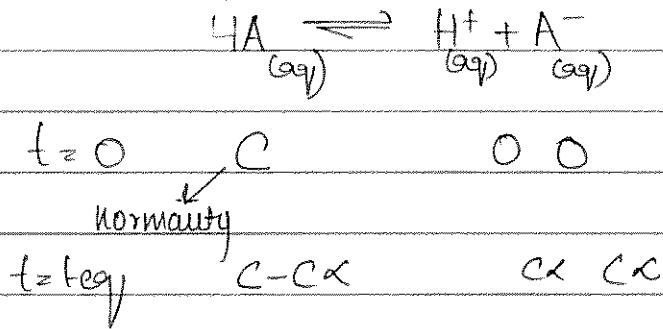 HA ⇌ H⁺ + A⁻
(aq) (aq) (aq)
t=0 C 0 0
Normality
t=teq C-Cα Cα Cα